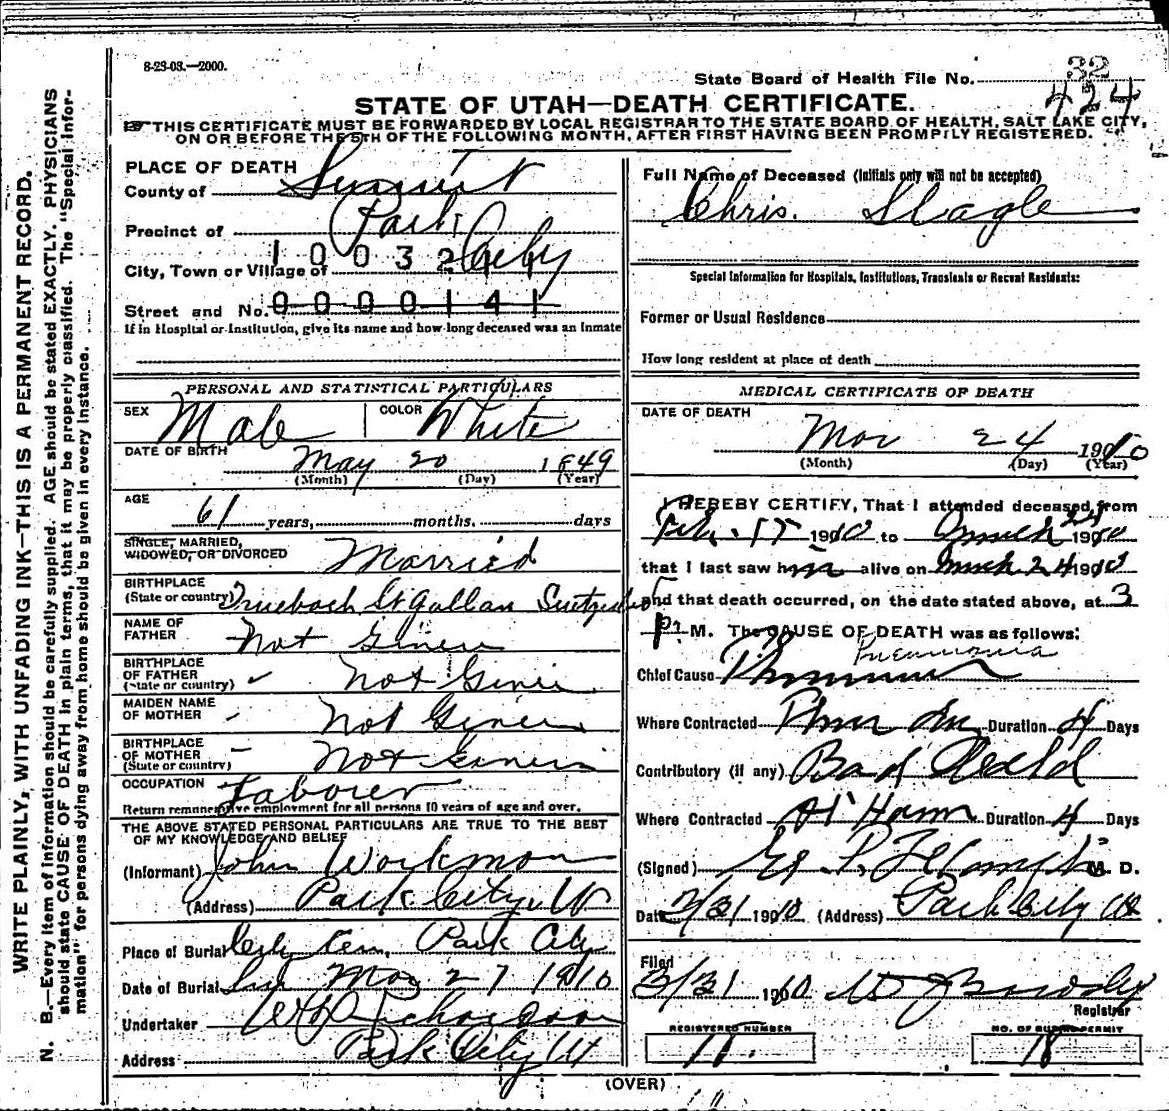 8-23-08.—2000.
State Board of Health File No. 32
424
STATE OF UTAH—DEATH CERTIFICATE.
THIS CERTIFICATE MUST BE FORWARDED BY LOCAL REGISTRAR TO THE STATE BOARD OF HEALTH, SALT LAKE CITY,
ON OR BEFORE THE 5TH OF THE FOLLOWING MONTH, AFTER FIRST HAVING BEEN PROMPTLY REGISTERED.
WRITE PLAINLY, WITH UNFADING INK—THIS IS A PERMANENT RECORD.
N. B.—Every item of information should be carefully supplied. AGE should be stated EXACTLY. PHYSICIANS
should state CAUSE OF DEATH in plain terms, that it may be properly classified. The "Special Infor-
mation" for persons dying away from home should be given in every instance.
PLACE OF DEATH
County of Summit
Precinct of Park City
City, Town or Village of 1 0 0 3 2
Street and No. 0 0 0 0 1 4 1
If in Hospital or Institution, give its name and how long deceased was an Inmate
PERSONAL AND STATISTICAL PARTICULARS
SEX Male COLOR White
DATE OF BIRTH May 20 1849
(Month) (Day) (Year)
AGE
61 years, months, days
SINGLE, MARRIED,
WIDOWED, OR DIVORCED Married
BIRTHPLACE
(State or country) Truebach St Gallan
NAME OF
FATHER Not Given
BIRTHPLACE
OF FATHER
(State or country) Not Given
MAIDEN NAME
OF MOTHER Not Given
BIRTHPLACE
OF MOTHER
(State or country) Not Given
OCCUPATION Laborer
Return remunerative employment for all persons 10 years of age and over.
THE ABOVE STATED PERSONAL PARTICULARS ARE TRUE TO THE BEST
OF MY KNOWLEDGE AND BELIEF
(Informant) John Workman
(Address) Park City Ut
Place of Burial City Cem, Park City
Date of Burial Mar 27 1910
Undertaker Richardson
Address Park City Ut
Full Name of Deceased (Initials only will not be accepted)
Chris. Slagle
Special Information for Hospitals, Institutions, Transients or Recent Residents:
Former or Usual Residence
How long resident at place of death
MEDICAL CERTIFICATE OF DEATH
DATE OF DEATH
Mar 24 1910
(Month) (Day) (Year)
I HEREBY CERTIFY, That I attended deceased from
Feb. 17 1910 to March 24 1910
that I last saw him alive on March 24 1910
and that death occurred, on the date stated above, at 3
P. M. The CAUSE OF DEATH was as follows:
Pneumonia
Chief Cause Pneumonia
Where Contracted Duration 4 Days
Contributory (if any) Bad
Where Contracted At Home Duration 4 Days
(Signed) M. D.
Date 3/31 1910 (Address) Park City Ut
Filed
3/31 1910
Registrar
REGISTERED NUMBER
11.
NO. OF BURIAL PERMIT
18
(OVER)